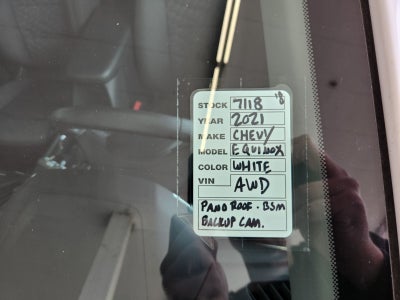 STOCK 7118 '18
YEAR 2021
MAKE CHEVY
MODEL EQUINOX
COLOR WHITE
VIN AWD
PANO ROOF. BSM
BACKUP CAM.